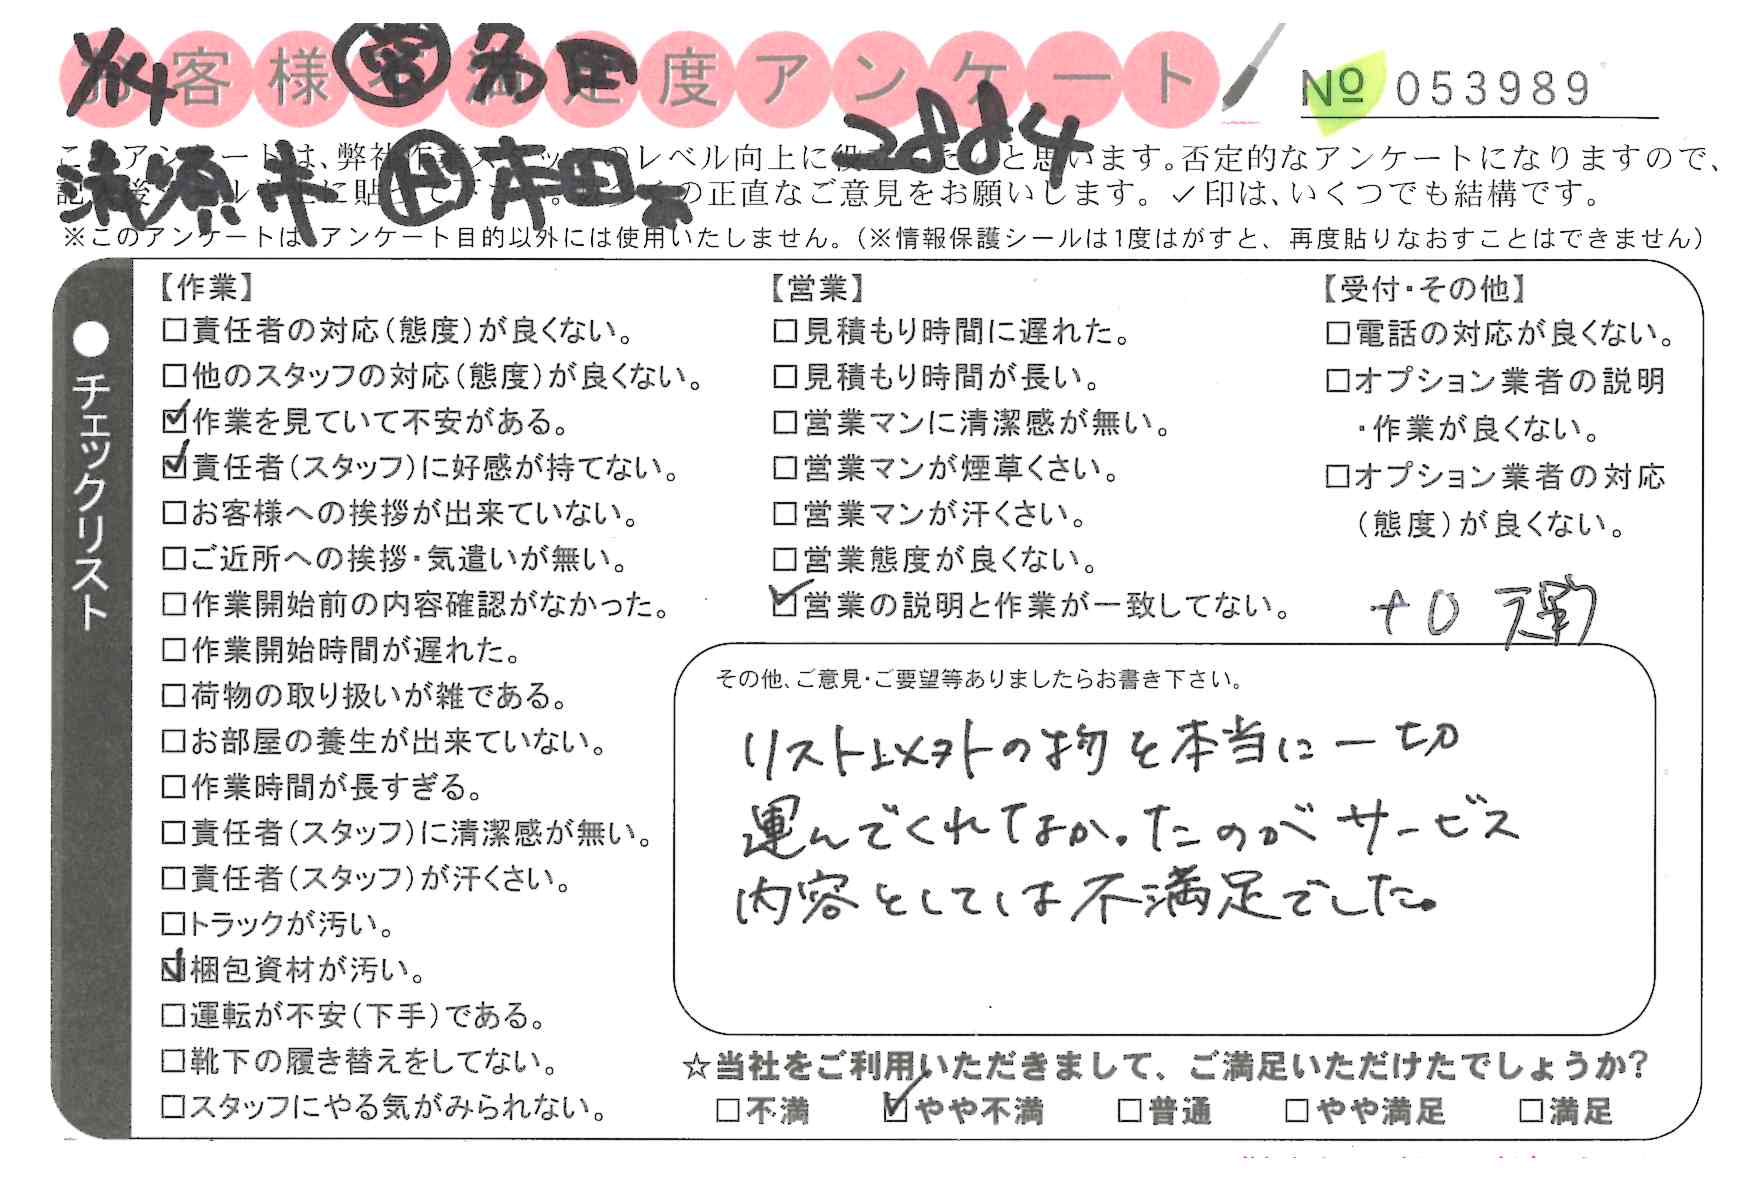 お客様不満足度アンケート
№ 053989
1/14 営 多田
2884
清原 井 作 本田
このアンケートは、弊社作業スタッフのレベル向上に役立てたいと思います。否定的なアンケートになりますので、
記入後シールを上に貼って下さい。多くの正直なご意見をお願いします。✓印は、いくつでも結構です。
※このアンケートは、アンケート目的以外には使用いたしません。(※情報保護シールは1度はがすと、再度貼りなおすことはできません)
●チェックリスト
【作業】
□責任者の対応(態度)が良くない。
□他のスタッフの対応(態度)が良くない。
☑作業を見ていて不安がある。
☑責任者(スタッフ)に好感が持てない。
□お客様への挨拶が出来ていない。
□ご近所への挨拶・気遣いが無い。
□作業開始前の内容確認がなかった。
□作業開始時間が遅れた。
□荷物の取り扱いが雑である。
□お部屋の養生が出来ていない。
□作業時間が長すぎる。
□責任者(スタッフ)に清潔感が無い。
□責任者(スタッフ)が汗くさい。
□トラックが汚い。
☑梱包資材が汚い。
□運転が不安(下手)である。
□靴下の履き替えをしてない。
□スタッフにやる気がみられない。
【営業】
□見積もり時間に遅れた。
□見積もり時間が長い。
□営業マンに清潔感が無い。
□営業マンが煙草くさい。
□営業マンが汗くさい。
□営業態度が良くない。
☑営業の説明と作業が一致してない。
【受付・その他】
□電話の対応が良くない。
□オプション業者の説明
・作業が良くない。
□オプション業者の対応
(態度)が良くない。
その他、ご意見・ご要望等ありましたらお書き下さい。
リスト以外の物を本当に一切
運んでくれてなかったのがサービス
内容としては不満足でした。
☆当社をご利用いただきまして、ご満足いただけたでしょうか?
□不満 ☑やや不満 □普通 □やや満足 □満足